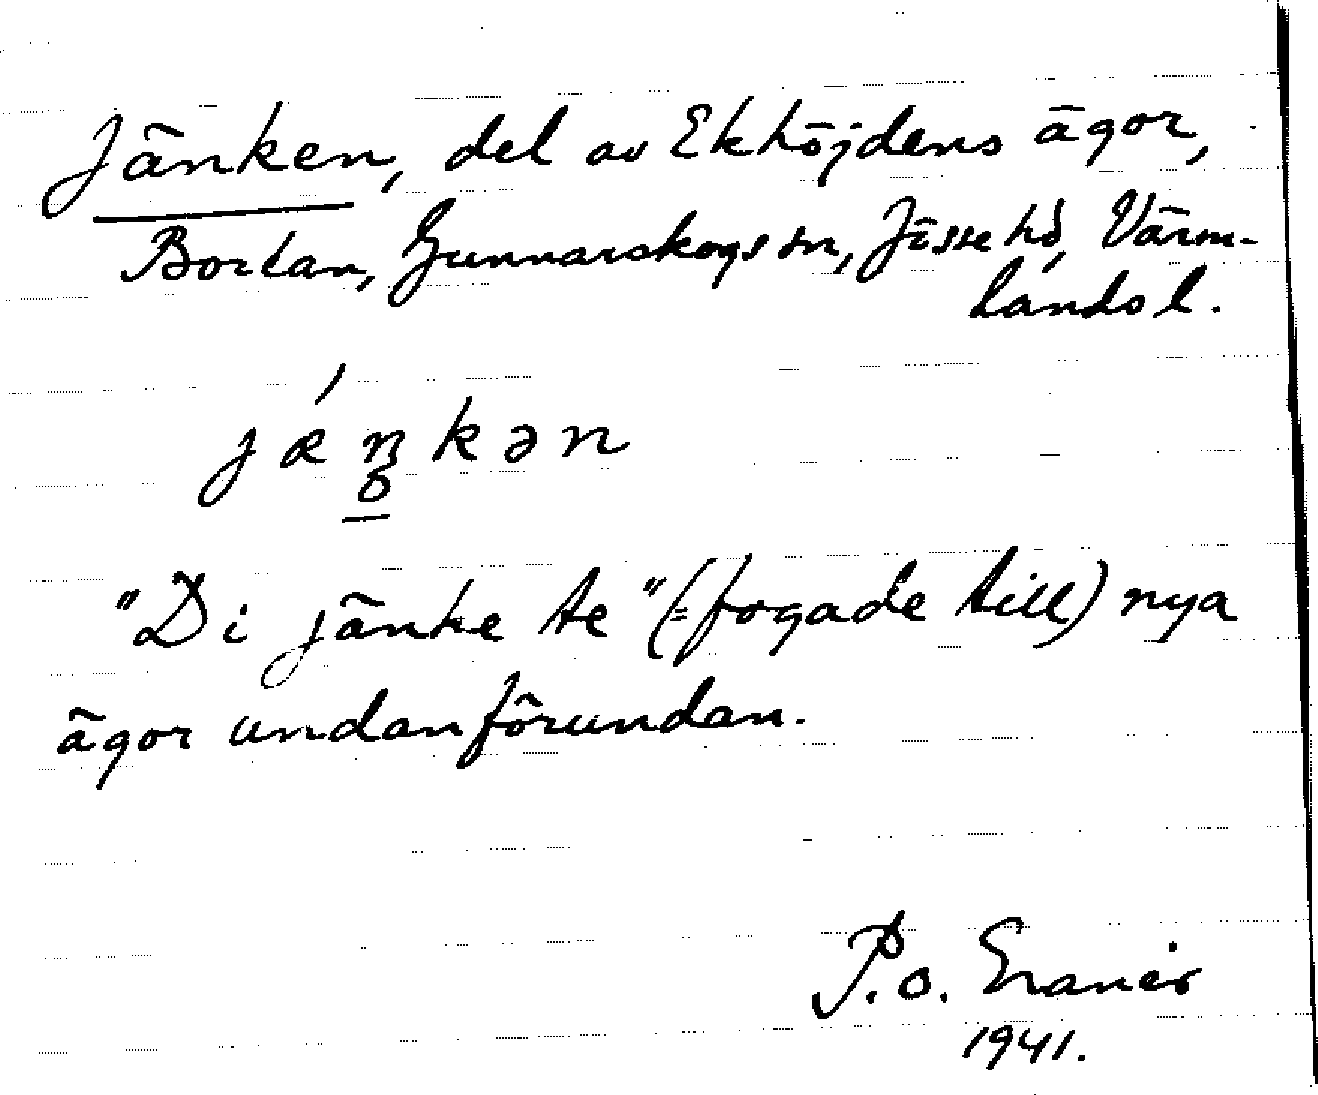 Jänken, del av Ekhöjdens ägor,
Bortan, Gunnarskogs sn, Jösse hd, Värm-
lands l.
jǽŋ̥kən
"Di jänke te" (= fogade till) nya
ägor undanförundan.
P. O.
1941.